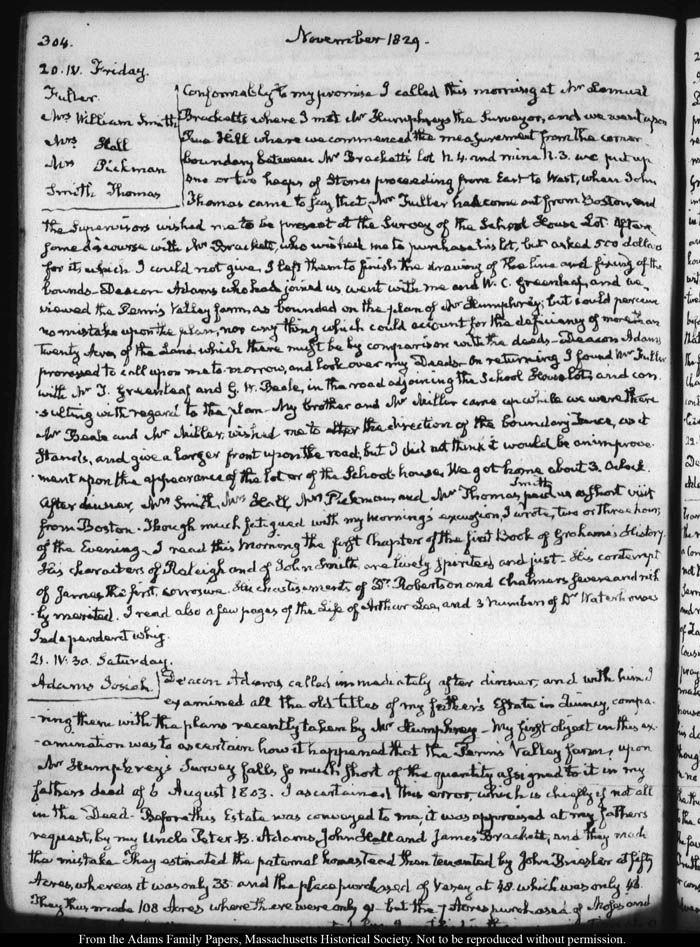 304.
November 1829.
20. IV. Friday.
Fuller.
Mrs William Smith
Mrs Hall
Mrs Pickman
Smith Thomas
Conformably to my promise I called this morning at Mr Lemuel
Bracketts where I met Mr Humphreys the Surveyor, and we went upon
Hill where we commenced the measurement from the corner
boundary between Mr Bracketts Lot N. 4. and mine N. 3. We put up
one or two heaps of Stones proceeding from East to West, when John
Thomas came to say that Mr Fuller had come out from Boston and
the Supervisors wished me to be present at the Survey of the School House Lot. After
some discourse with Mr Brackett, who wished me to purchase his lot, but asked 500 dollars
for it, which I could not give, I left them to finish the drawing of the line and fixing of the
bounds. Deacon Adams who had joined us went with me and W. C. Greenleaf, and we
viewed the Penn's Valley farm, as bounded on the plan of Mr Humphrey; but could perceive
no mistake upon the plan, nor any thing which could account for the deficiency of more than
twenty Acres of the Land which there must be by comparison with the deeds. Deacon Adams
promised to call upon me to-morrow, and look over my Deeds. On returning I found Mr Fuller
with Mr T. Greenleaf and G. W. Beale, in the road adjoining the School House Lot, and con-
-sulting with regard to the plan. My brother and Mr Miller came up while we were there
Mr Beale and Mr Miller, wished me to alter the direction of the boundary fence, as it
stands, and give a larger front upon the road, but I did not think it would be an improve-
-ment upon the appearance of the lot or of the School house. We got home about 3. O'clock.
After dinner, Mrs Smith, Mrs Hall, Mrs Pickman, and Mr Thomas Smith, paid us a short visit
from Boston. Though much fatigued with my morning's excursion, I wrote, two or three hours
of the Evening. I read this Morning the first Chapter of the first Book of Grahame's History.
His characters of Raleigh and of John Smith are lively spirited and just. His contempt
of James the first, corrosive. His chastisements of Dr. Robertson and Chalmers severe and rich
-ly merited. I read also a few pages of the Life of Arthur Lee, and 3 numbers of Dr Waterhouse's
Independent Whig.
21. IV: 30. Saturday.
Adams Josiah.
Deacon Adams called immediately after dinner, and with him I
examined all the old titles of my father's Estate in Quincy, compa-
-ring them with the plans recently taken by Mr Humphrey. My first object in this ex-
-amination was to ascertain how it happened that the Penn's Valley farm, upon
Mr Humphrey's Survey falls so much short of the quantity assigned to it in my
fathers deed of 6 August 1803. I ascertained this error, which is chiefly if not all
in the Deed. Before this Estate was conveyed to me, it was appraised at my fathers
request, by my Uncle Peter B. Adams, John Hall and James Brackett, and they made
the mistake. They estimated the paternal homestead then tenanted by John Briesler at fifty
Acres, whereas it was only 35. and the place purchased of Vesey at 58. which was only
They thus made 108 Acres where there were only but the 7 Acres purchased of and
From the Adams Family Papers, Massachusetts Historical Society. Not to be reproduced without permission.